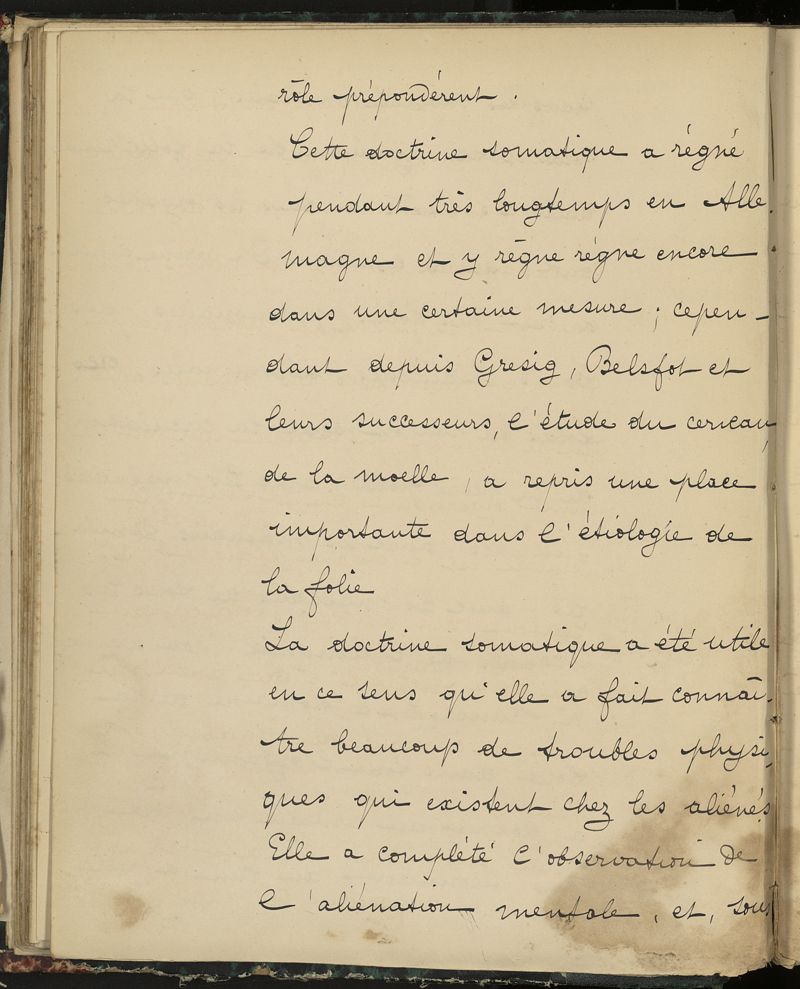 rôle prépondérent.
Cette doctrine somatique a régné
pendant très longtemps en Alle-
magne et y règne règne encore
dans une certaine mesure ; cepen-
dant depuis Gresig, Belsfot et
leurs successeurs, l'étude du cerveau,
de la moelle, a repris une place
importante dans l'étiologie de
la folie
La doctrine somatique a été utile
en ce sens qu'elle a fait connaî-
tre beaucoup de troubles physi-
ques qui existent chez les aliénés
Elle a complété l'observation de
l'aliénation mentale, et, sous